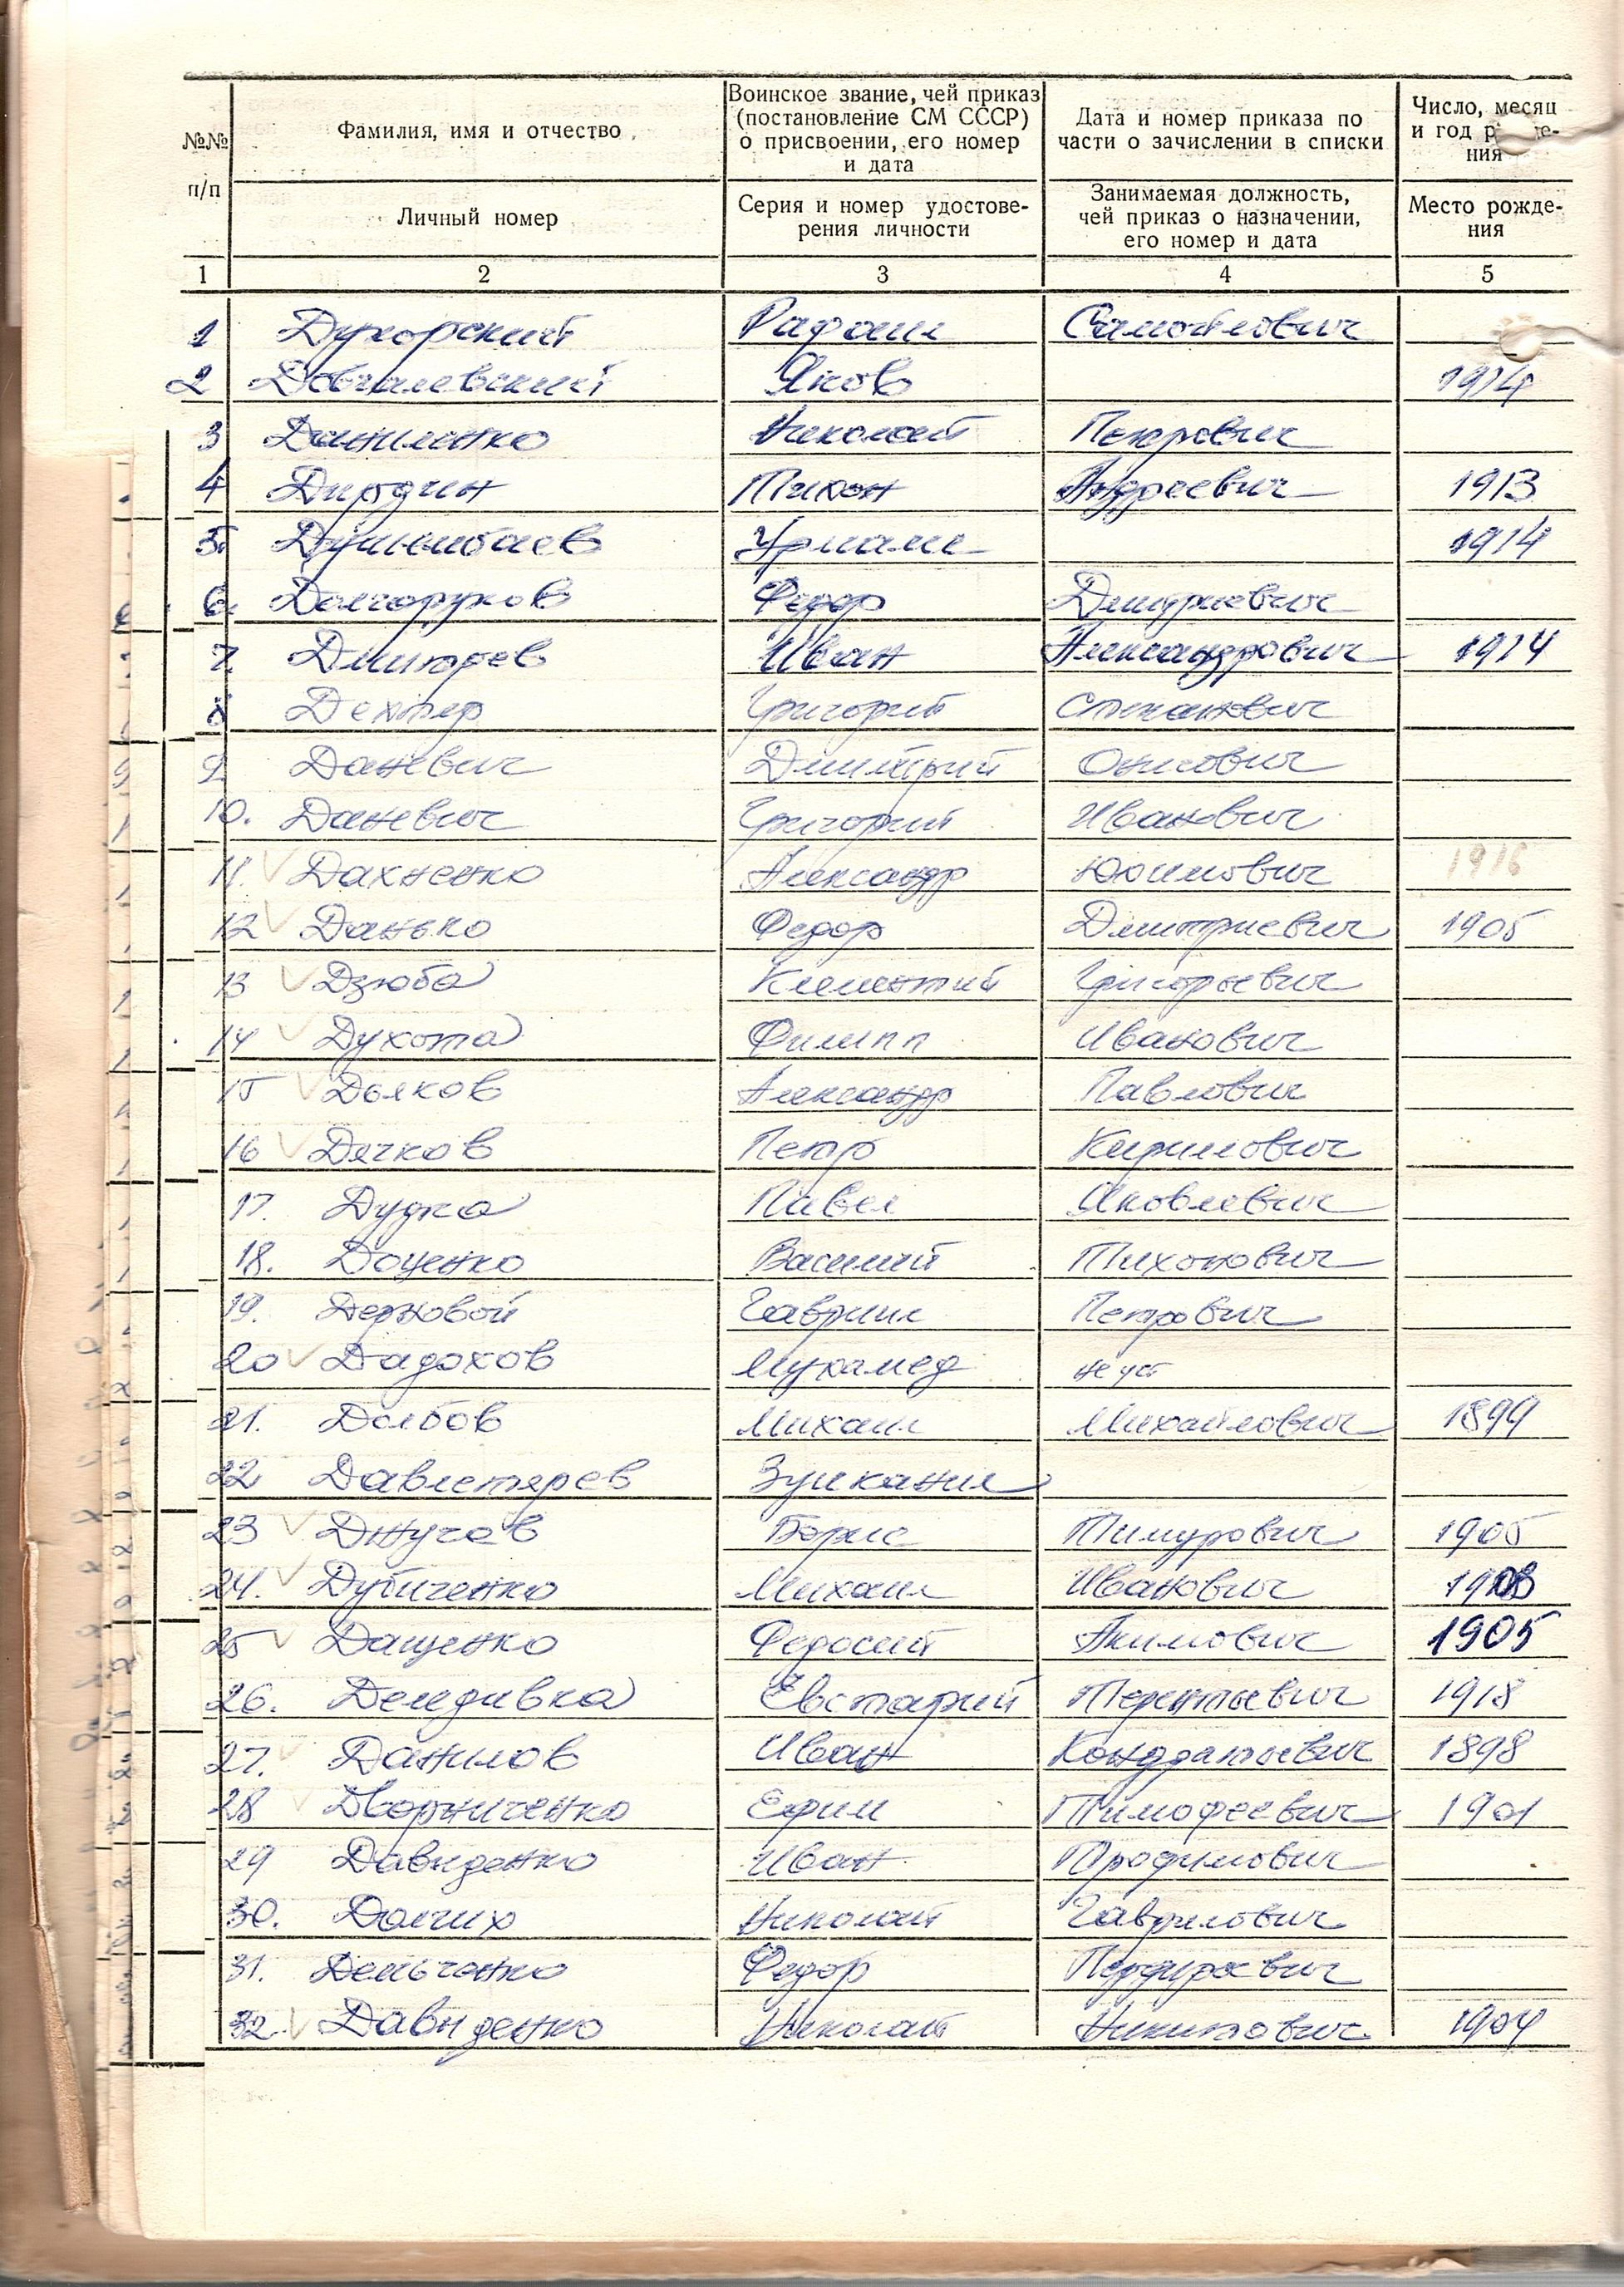 №№ п/п
Фамилия, имя и отчество
Личный номер
Воинское звание, чей приказ
(постановление СМ СССР)
о присвоении, его номер
и дата
Серия и номер удостове-
рения личности
Дата и номер приказа по
части о зачислении в списки
Занимаемая должность,
чей приказ о назначении,
его номер и дата
Число, месяц
и год рожде-
ния
Место рожде-
ния
1 2 3 4 5
1 Духорский Рафаил Самойлович
2 Довгалевский Яков 1914
3 Даниленко Николай Петрович
4 Дирдин Тихон Андреевич 1913
5. 1914
6. Долгоруков Федор Дмитриевич
7. Дмитрев Иван Александрович 1914
8 Дехтяр Григорий Степанович
9 Даневич Димитрий
10. Даневич Григорий Иванович
11. Дахненко Александр Юхимович 1916
12 Данько Федор Дмитриевич 1905
13 Дзюба Климентий Григорьевич
14 Духота Филипп Иванович
15 Дьяков Александр Павлович
16 Дячков Петр Кирилович
17. Дудка Павел Яковлевич
18. Доценко Василий Тихонович
19. Дерновой Гаврил Петрович
20 Дадохов Мухамед не уст
21. Долбов Михаил Михайлович 1899
22 Давлетярев
23 Джугов Борис Тимурович 1905
24. Дубиченко Михаил Иванович
25 Дащенко Федосий Акимович 1905
26. Деледивка Евстафий Терентьевич 1918
27. Данилов Иван Кондратьевич 1898
28 Дворниченко Ефим Тимофеевич 1901
29 Давиденко Иван Трофимович
30. Долгих Николай Гаврилович
31. Демьченко Федор
32. Давиденко Николай Никитович 1904